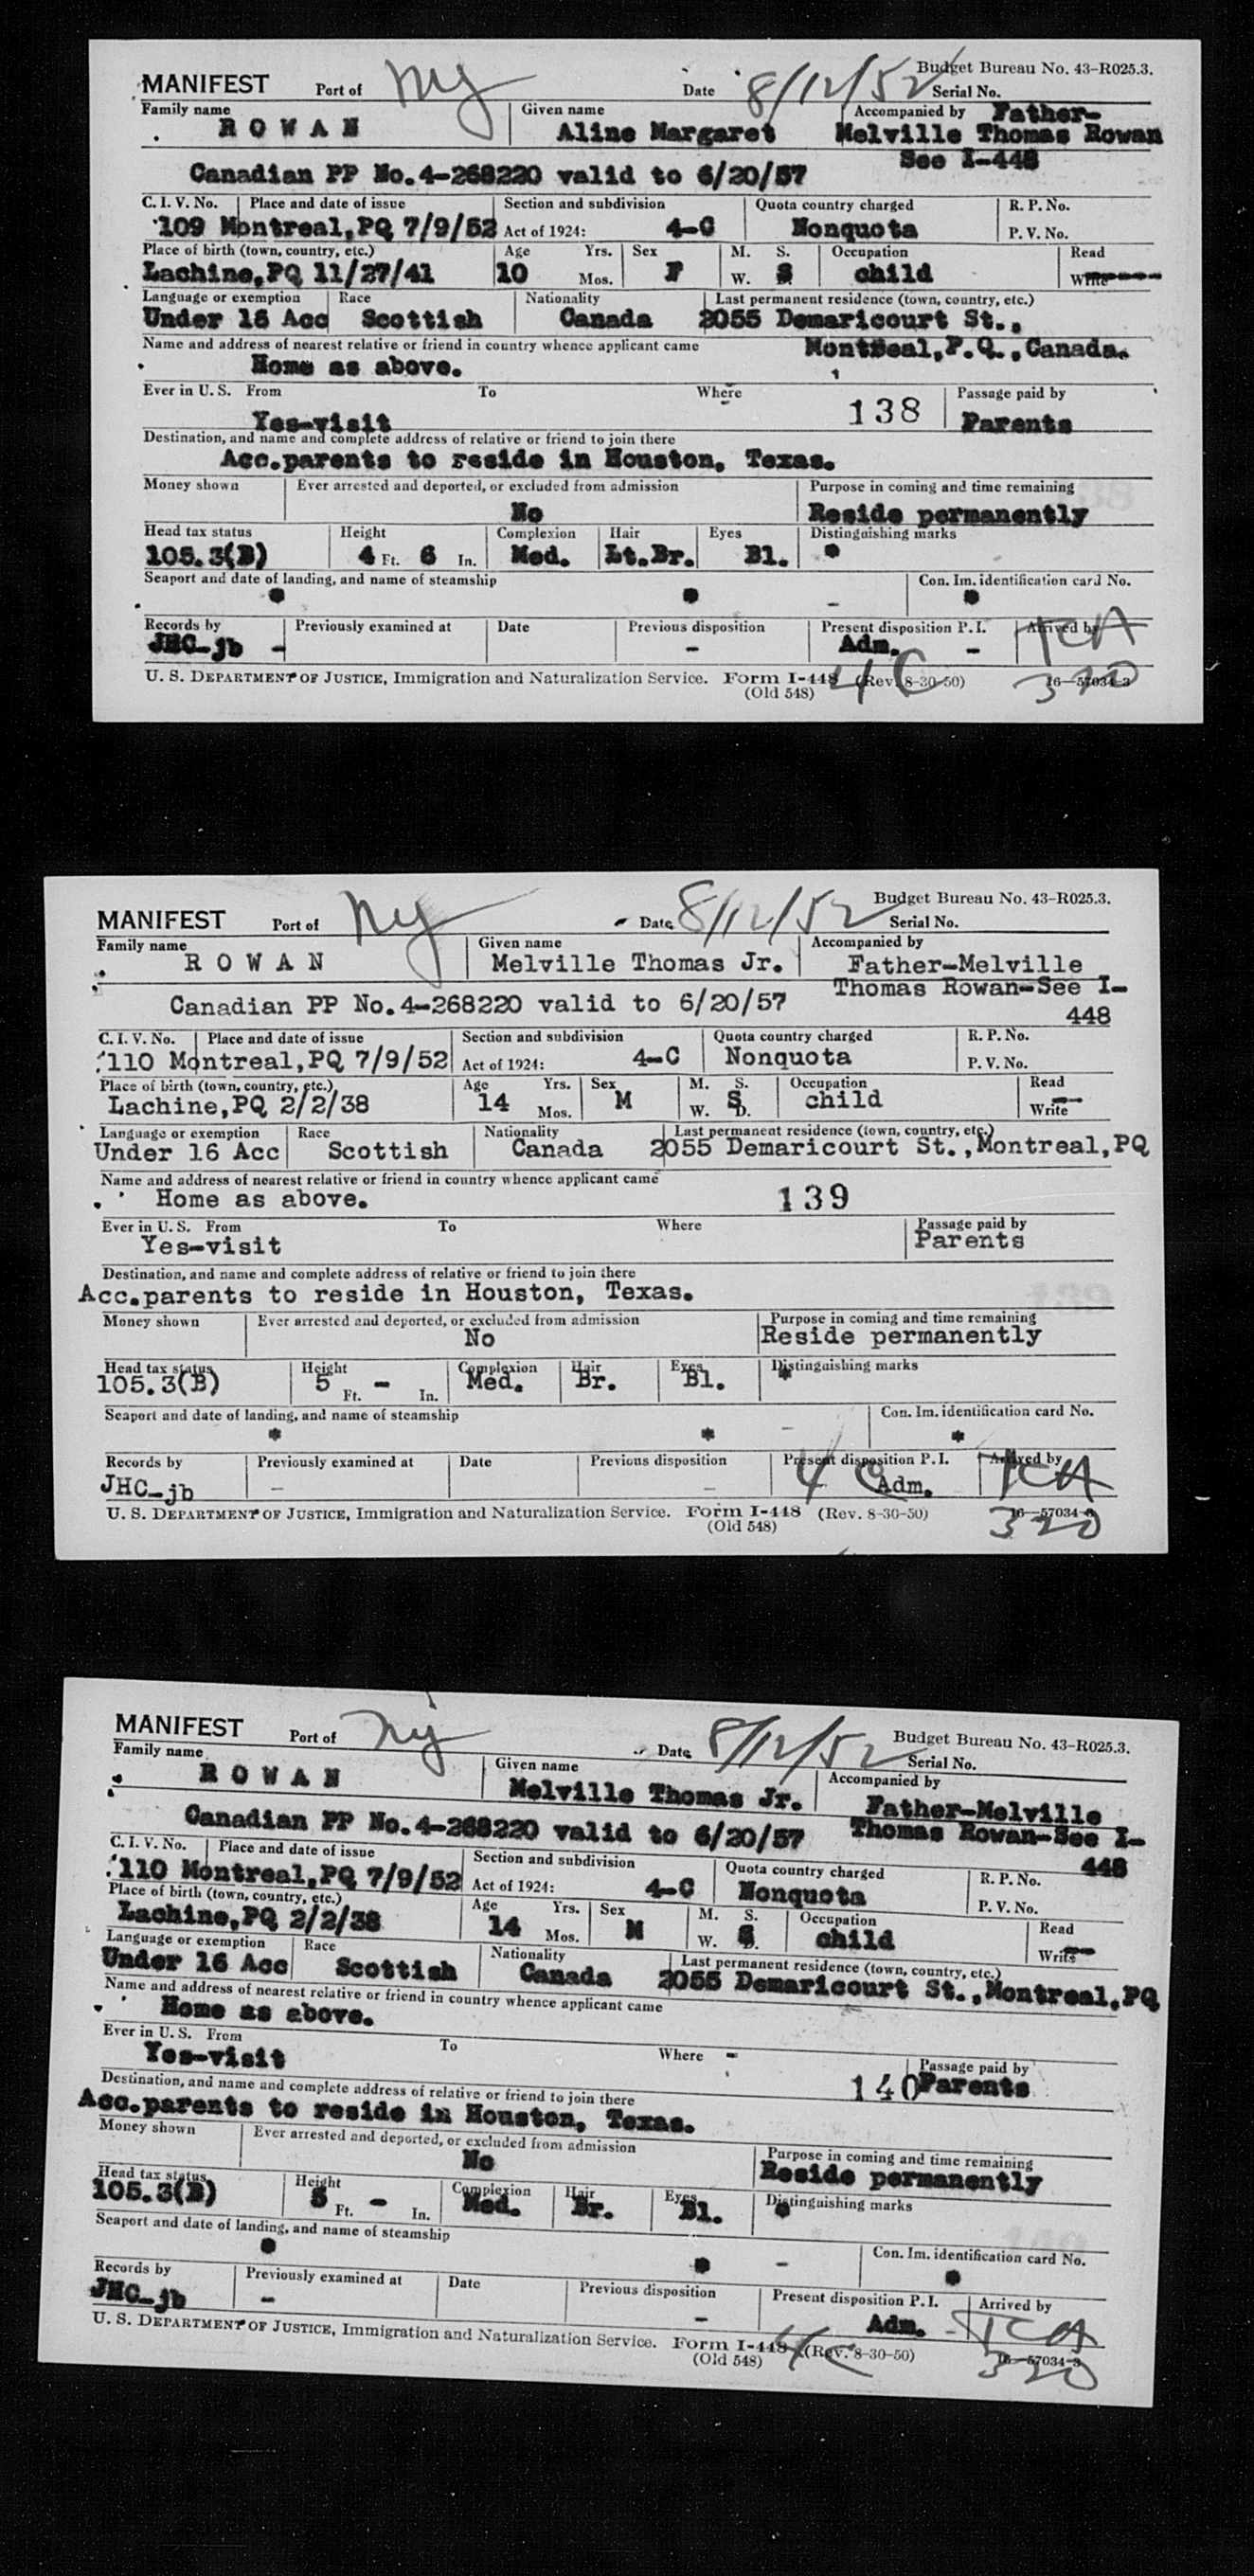 Budget Bureau No. 43-R025.3.
MANIFEST Port of NY Date 8/12/52 Serial No.
Family name Given name Accompanied by Father-
ROWAN Aline Margaret Melville Thomas Rowan
See I-448
Canadian PP No.4-268220 valid to 6/20/57
C. I. V. No. Place and date of issue Section and subdivision Quota country charged R. P. No.
109 Montreal,PQ 7/9/52 Act of 1924: 4-C Nonquota P. V. No.
Place of birth (town, country, etc.) Age Yrs. Sex M. S. Occupation Read
Lachine,PQ 11/27/41 10 Mos. F W. S child Write
Language or exemption Race Nationality Last permanent residence (town, country, etc.)
Under 16 Acc Scottish Canada 2055 Demaricourt St.,
Name and address of nearest relative or friend in country whence applicant came Montreal,P.Q.,Canada.
Home as above.
Ever in U. S. From To Where 138 Passage paid by
Yes-visit Parents
Destination, and name and complete address of relative or friend to join there
Acc.parents to reside in Houston, Texas.
Money shown Ever arrested and deported, or excluded from admission Purpose in coming and time remaining
No Reside permanently
Head tax status Height Complexion Hair Eyes Distinguishing marks
105.3(B) 4 Ft. 6 In. Med. Lt.Br. Bl. *
Seaport and date of landing, and name of steamship Con. Im. identification card No.
* * - *
Records by Previously examined at Date Previous disposition Present disposition P. I. Arrived by TCA
JHC-jb - - Adm. -
U. S. DEPARTMENT OF JUSTICE, Immigration and Naturalization Service. Form I-448 4C (Rev. 8-30-50) 16—57034-3 320
(Old 548)
Budget Bureau No. 43-R025.3.
MANIFEST Port of NY Date 8/12/52 Serial No.
Family name Given name Accompanied by
ROWAN Melville Thomas Jr. Father-Melville
Thomas Rowan-See I-
Canadian PP No.4-268220 valid to 6/20/57 448
C. I. V. No. Place and date of issue Section and subdivision Quota country charged R. P. No.
110 Montreal,PQ 7/9/52 Act of 1924: 4-C Nonquota P. V. No.
Place of birth (town, country, etc.) Age Yrs. Sex M. S. Occupation Read
Lachine,PQ 2/2/38 14 Mos. M W. S D. child Write
Language or exemption Race Nationality Last permanent residence (town, country, etc.)
Under 16 Acc Scottish Canada 2055 Demaricourt St.,Montreal,PQ
Name and address of nearest relative or friend in country whence applicant came
Home as above. 139
Ever in U. S. From To Where Passage paid by
Yes-visit Parents
Destination, and name and complete address of relative or friend to join there
Acc.parents to reside in Houston, Texas.
Money shown Ever arrested and deported, or excluded from admission Purpose in coming and time remaining
No Reside permanently
Head tax status Height Complexion Hair Eyes Distinguishing marks
105.3(B) 5 Ft. - In. Med. Br. Bl. *
Seaport and date of landing, and name of steamship Con. Im. identification card No.
* * - *
Records by Previously examined at Date Previous disposition Present disposition P. I. Arrived by TCA
JHC-jb - - 4C Adm.
U. S. DEPARTMENT OF JUSTICE, Immigration and Naturalization Service. Form I-448 (Rev. 8-30-50) 16—57034-3 320
(Old 548)
Budget Bureau No. 43-R025.3.
MANIFEST Port of NY Date 8/12/52 Serial No.
Family name Given name Accompanied by
ROWAN Melville Thomas Jr. Father-Melville
Canadian PP No.4-268220 valid to 6/20/57 Thomas Rowan-See I-
448
C. I. V. No. Place and date of issue Section and subdivision Quota country charged R. P. No.
110 Montreal,PQ 7/9/52 Act of 1924: 4-C Nonquota P. V. No.
Place of birth (town, country, etc.) Age Yrs. Sex M. S. Occupation Read
Lachine,PQ 2/2/38 14 Mos. M W. S D. child Write
Language or exemption Race Nationality Last permanent residence (town, country, etc.)
Under 16 Acc Scottish Canada 2055 Demaricourt St.,Montreal,PQ
Name and address of nearest relative or friend in country whence applicant came
Home as above.
Ever in U. S. From To Where - Passage paid by
Yes-visit 140 Parents
Destination, and name and complete address of relative or friend to join there
Acc.parents to reside in Houston, Texas.
Money shown Ever arrested and deported, or excluded from admission Purpose in coming and time remaining
No Reside permanently
Head tax status Height Complexion Hair Eyes Distinguishing marks
105.3(B) 5 Ft. - In. Med. Br. Bl. *
Seaport and date of landing, and name of steamship Con. Im. identification card No.
* * - *
Records by Previously examined at Date Previous disposition Present disposition P. I. Arrived by
JHC-jb - - Adm. - TCA
U. S. DEPARTMENT OF JUSTICE, Immigration and Naturalization Service. Form I-448 4C (Rev. 8-30-50) 16—57034-3 320
(Old 548)